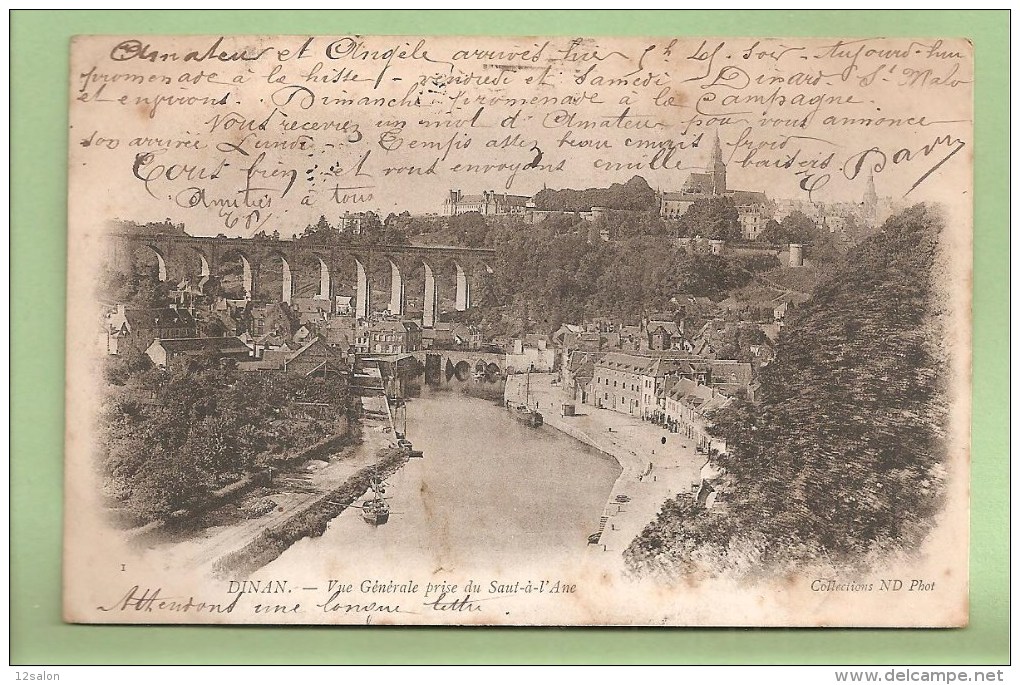 Amateur et Angèle arrivés hier 5h 45 soir - Aujourd'hui
promenade à la hisse - vendredi et Samedi - Dinard - St Malo
et environs. Dimanche promenade à la Campagne
Vous recevrez un mot d'Amateur pour vous annoncer
son arrivée Lundi. - Temps assez beau mais froid
Tous bien et vous envoyons mille baisers
Amitiés à tous
1
DINAN. — Vue Générale prise du Saut-à-l'Ane
Collections ND Phot
Attendons une longue lettre
12salon
www.delcampe.net